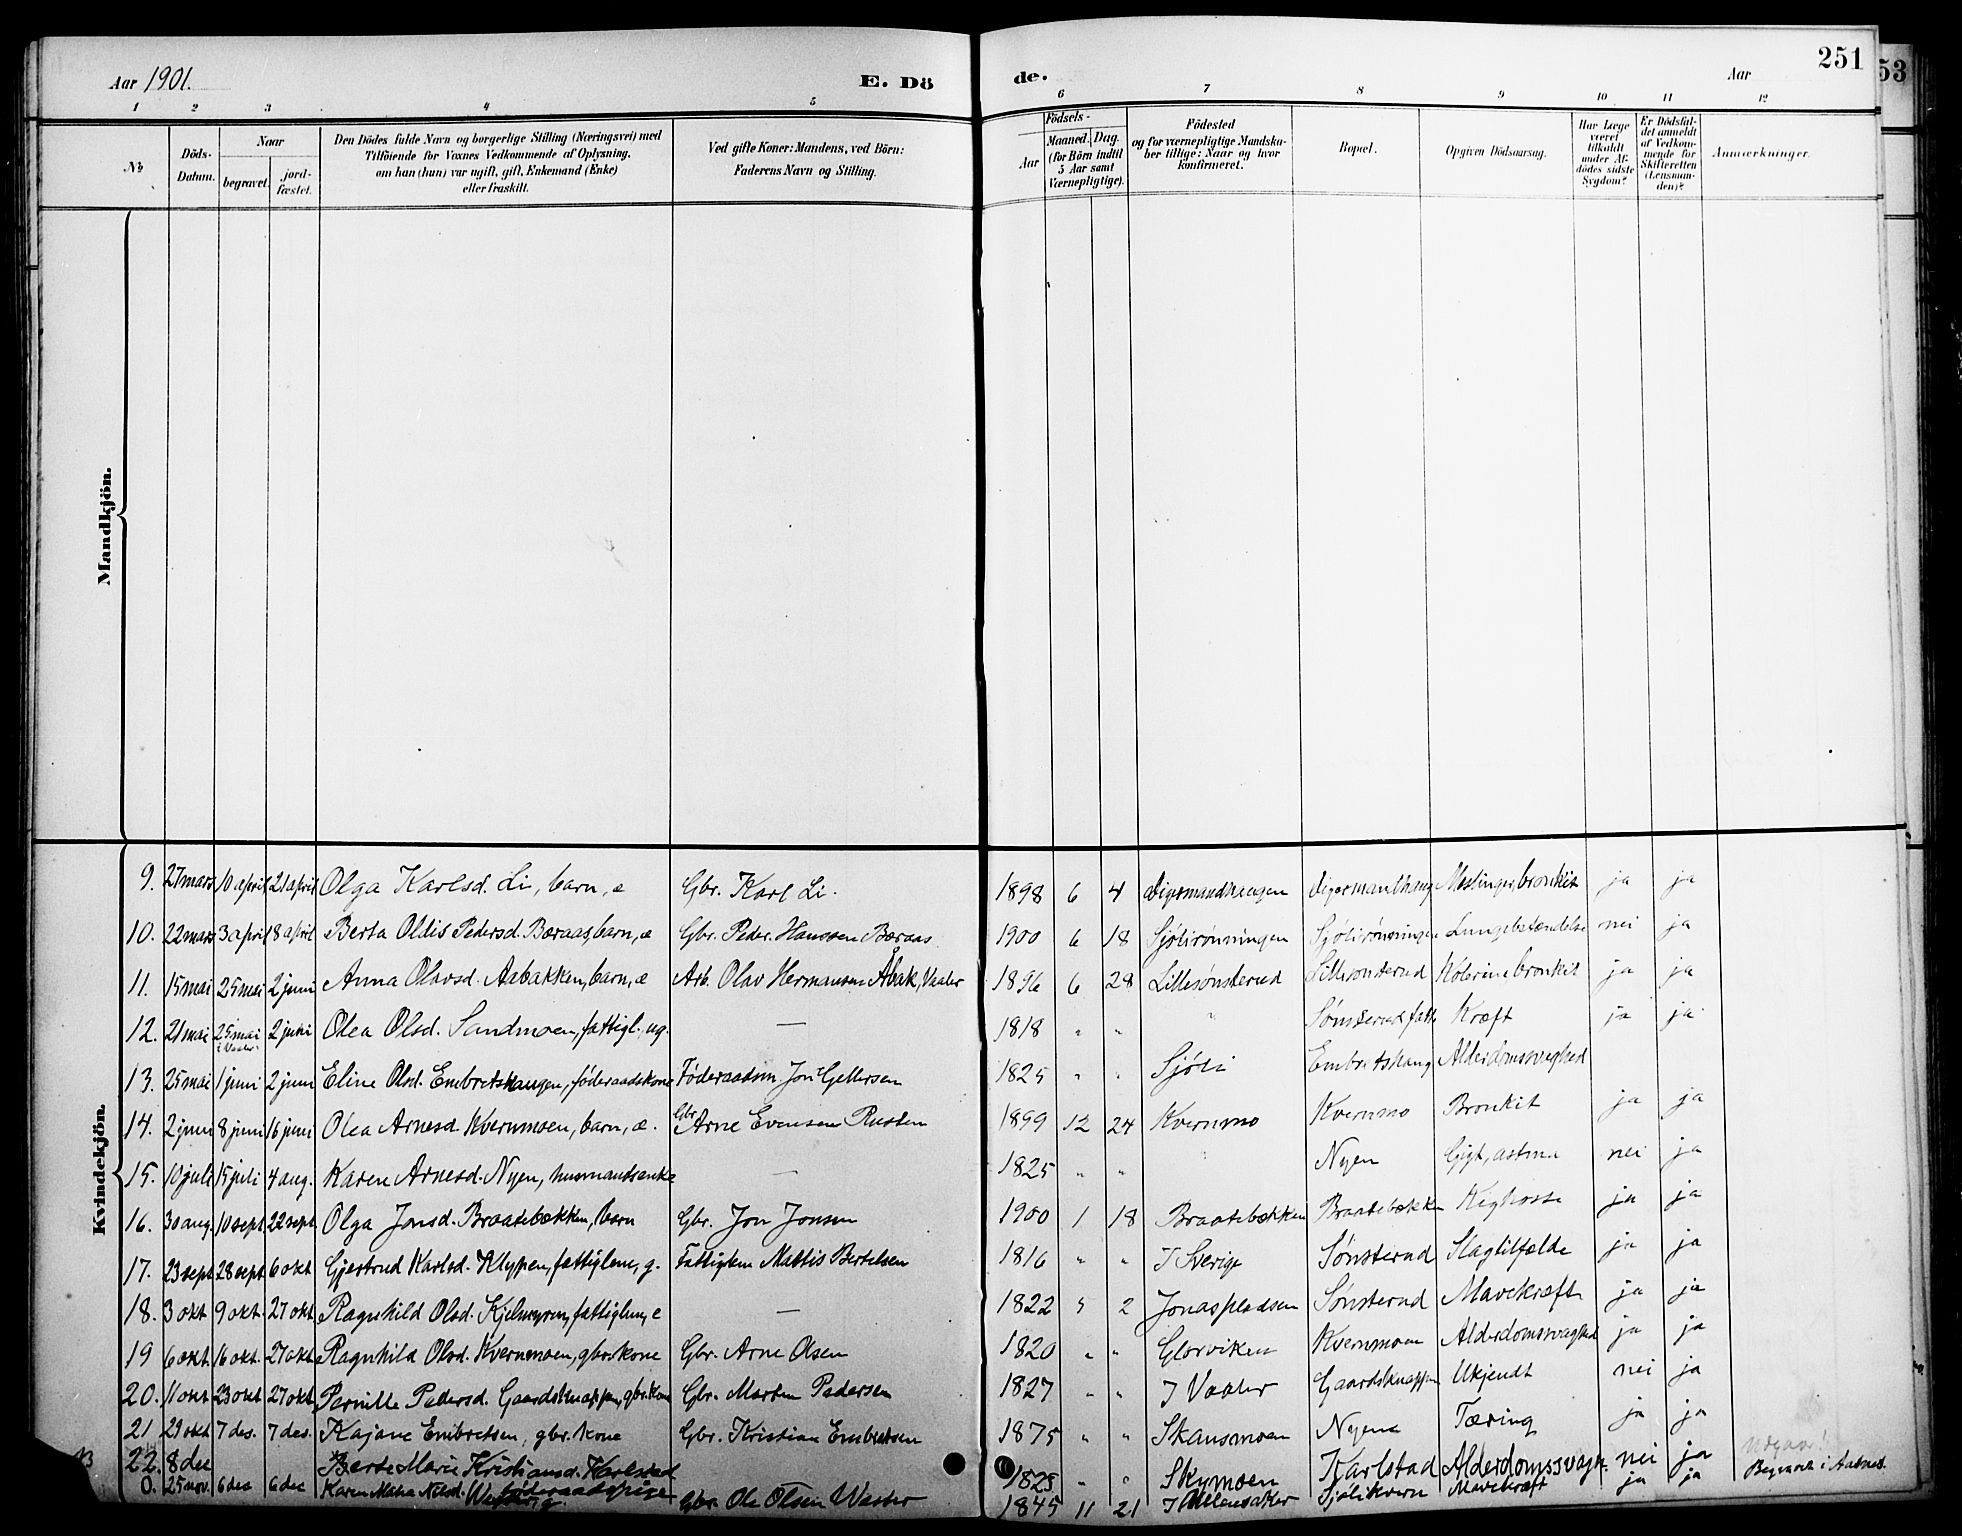 Aar 1901.
E. Dö
de.
Aar
251
53
1 2 3 4 5 6 7 8 9 10 11 12
No
Döds-Datum.
Naar
begravet.
jord-fæstet.
Den Dödes fulde Navn og borgerlige Stilling (Næringsvei) med
Tilföiende for Voxnes Vedkommende af Oplysning,
om han (hun) var ugift, gift, Enkemand (Enke)
eller fraskilt.
Ved gifte Koner: Mandens, ved Börn:
Faderens Navn og Stilling.
Födsels-
Aar
Maaned. Dag.
(for Börn indtil
5 Aar samt
Værnepligtige).
Födested
og for værnepligtige Mandska-
ber tillige: Naar og hvor
konfirmeret.
Bopæl.
Opgiven Dödsaarsag.
Har Læge
været
tilkaldt
under Af-
dödes sidste
Sygdom?
Er Dödsfal-
det anmeldt
af Vedkom-
mende for
Skifteretten
(Lensman-
den)?
Anmærkninger.
Mandkjön.
Kvindekjön.
9. 27 mars 10 april 21 april Olga Karlsd. Li, barn, e Gbr. Karl Li. 1898 6 4 Digermandhaugen Digermanthaug Meslinger, bronkit ja ja
10. 22 mars 3 april 8 april Berta Oldis Pedersd. Bæraas, barn, æ Gbr. Peder Hanssen Bæraas 1900 6 18 Sjølirønningen Sjølirønningen Lungebetændelse nei ja
11. 15 mai 25 mai 2 juni Anna Olavsd. Aabakken, barn, æ Arb. Olav Hermansen Åbak, Vaaler 1896 6 28 Lillesønsterud Lillesønsterud Kolerine, bronkit ja ja
12. 21 mai 25 mai i Vaaler 2 juni Olea Olsd. Sandmoen, fattigl., ug. — 1818 " " " Sønsterud fatt. Kræft ja ja
13. 25 mai 1 juni 2 juni Eline Olsd. Embretshaugen, føderaadskone Føderaadsm. Jon Gellersen 1825 " " Sjøli Embretshaug Alderdomssvaghed
14. 2 juni 8 juni 16 juni Olea Arnesd. Kvernmoen, barn, æ. Gbr. Arne Evensen Rusten 1899 12 24 Kvernmo Kvernmo Bronkit ja ja
15. 10 juli 15 juli 4 aug. Karen Arnesd. Nyen, husmandsenke — 1825 " " " Nyen Gigt, astma nei ja
16. 30 aug. 10 sept 22 sept Olga Jonsd. Braatebækken, barn Gbr. Jon Jonsen 1900 1 18 Braatebækken Braatebækken Kighoste ja ja
17. 23 sept 28 sept 6 okt Gjertrud Karlsd. Klyppen, fattiglem, g. Fattiglem Mattis Bertelsen 1816 " " I Sverige Sønsterud Slagtilfælde ja ja
18. 3 okt 9 okt 27 okt Ragnhild Olsd. Kjelmyren, fattiglem, e — 1822 5 2 Jonaspladsen Sønsterud Mavekræft ja ja
19 6 okt. 16 okt. 27 okt Ragnhild Olsd. Kvernmoen, gbr.kone Gbr. Arne Olsen 1820 " " Glorviken Kvernmoen Alderdomssvaghed ja ja
20. 11 okt 23 okt 27 okt. Pernille Pedersd. Gaardsknappen, gbr.kone Gbr. Morten Pedersen 1827 " " I Vaaler Gaardsknappen Ukjendt nei ja
21 29 okt 7 des. 7 des. Kajane Embretsen, gbr. kone Gbr. Kristian Embretsen 1875 " " Skansmoen Nyen Tæring ja ja
22. 8 des Berte Marie Kristiansd. Karlstad 1823 " Skymoen Karlstad Alderdomssvagh. nei ja Udgaar!
0. 25 nov. 6 des 6 des Karen Nilsd. Gbr. Ole Olsen Wester 1845 11 21 I Ullensaker Sjølikvern Mavekræft ja ja